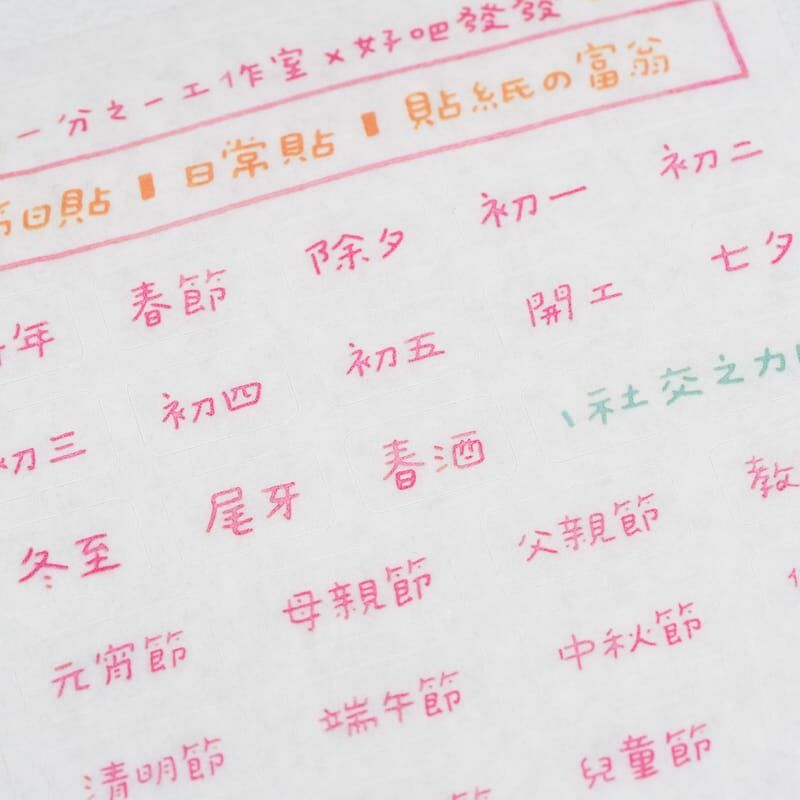 一分之一工作室×好吧發發
節日貼▮日常貼▮貼紙の富翁
年 春節 除夕 初一 初二
初三 初四 初五 開工 七夕
冬至 尾牙 春酒 社交之力
元宵節 母親節 父親節 教
清明節 端午節 中秋節
節 兒童節